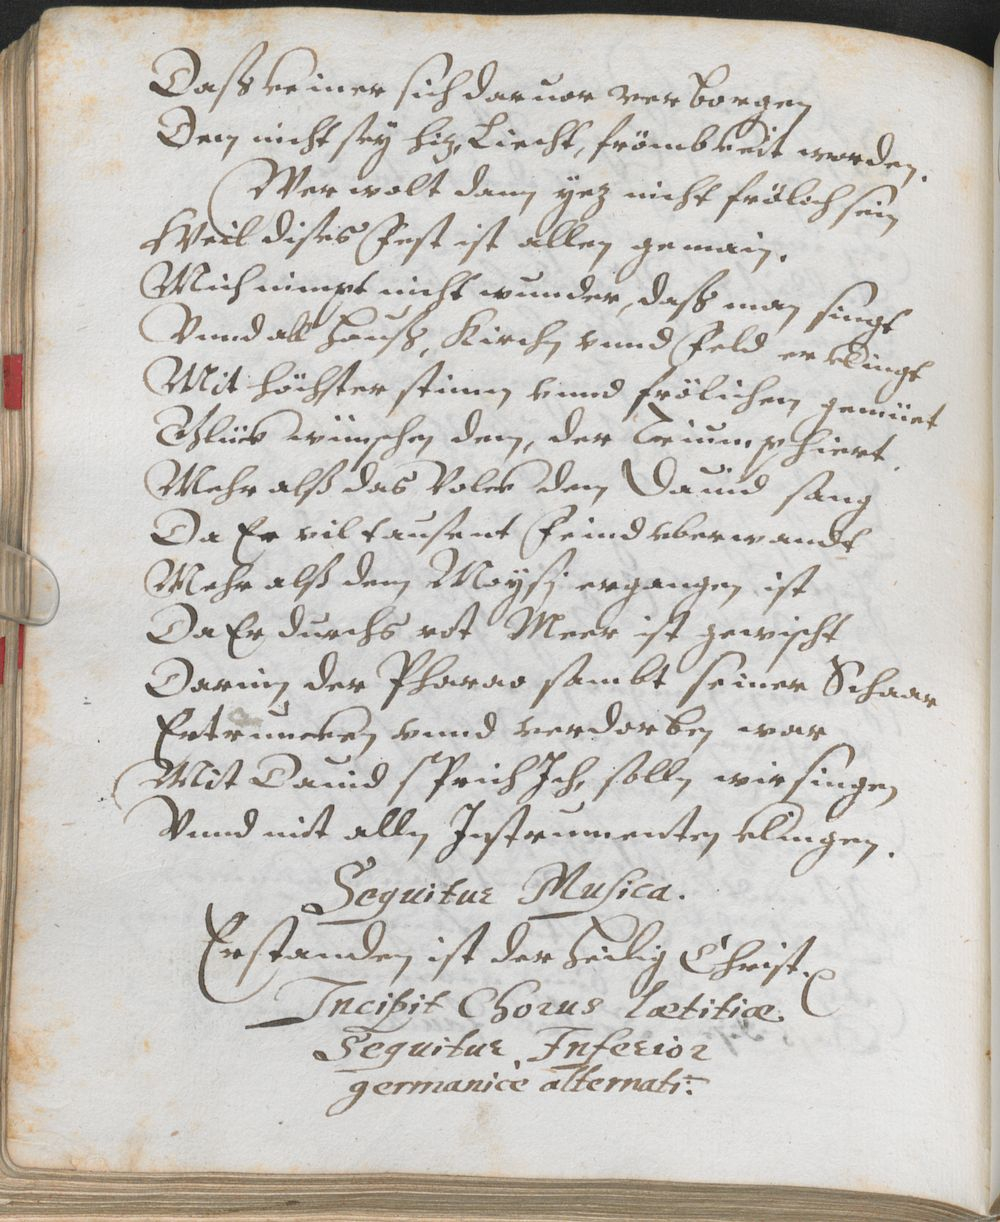 Dass keiner sich daruor verborgen
Dem nicht sey hiz, Liecht, frombkeit worden.
Wer wolt dann yez nicht frölich sein
Weil dises Fest ist allen gemain.
Mich nimpt nicht wunder, dass man singt
Vnnd all Hauss, Kirch vnnd Feld erklingt
Mit höchster stimm vnnd frölichem gemüet
Glück wünschen dem, der Triumphiert.
Mehr alss das Volck dem Dauid sang
Da Er vil tausent Feind vberwandt
Mehr alss dem Moysj ergangen ist
Da Er durchs rot Meer ist gewischt
Darinn der Pharao sambt seiner Schaar
Ertruncken vnnd verdorben war
Mit Dauid sprich Ich, solln wir singen
Vnnd mit alln Instrumenten klingen.
Sequitur Musica.
Erstanden ist der heilig Christ.
Incipit Chorus lætitiæ
Sequitur Inferior
germanicè alternati: